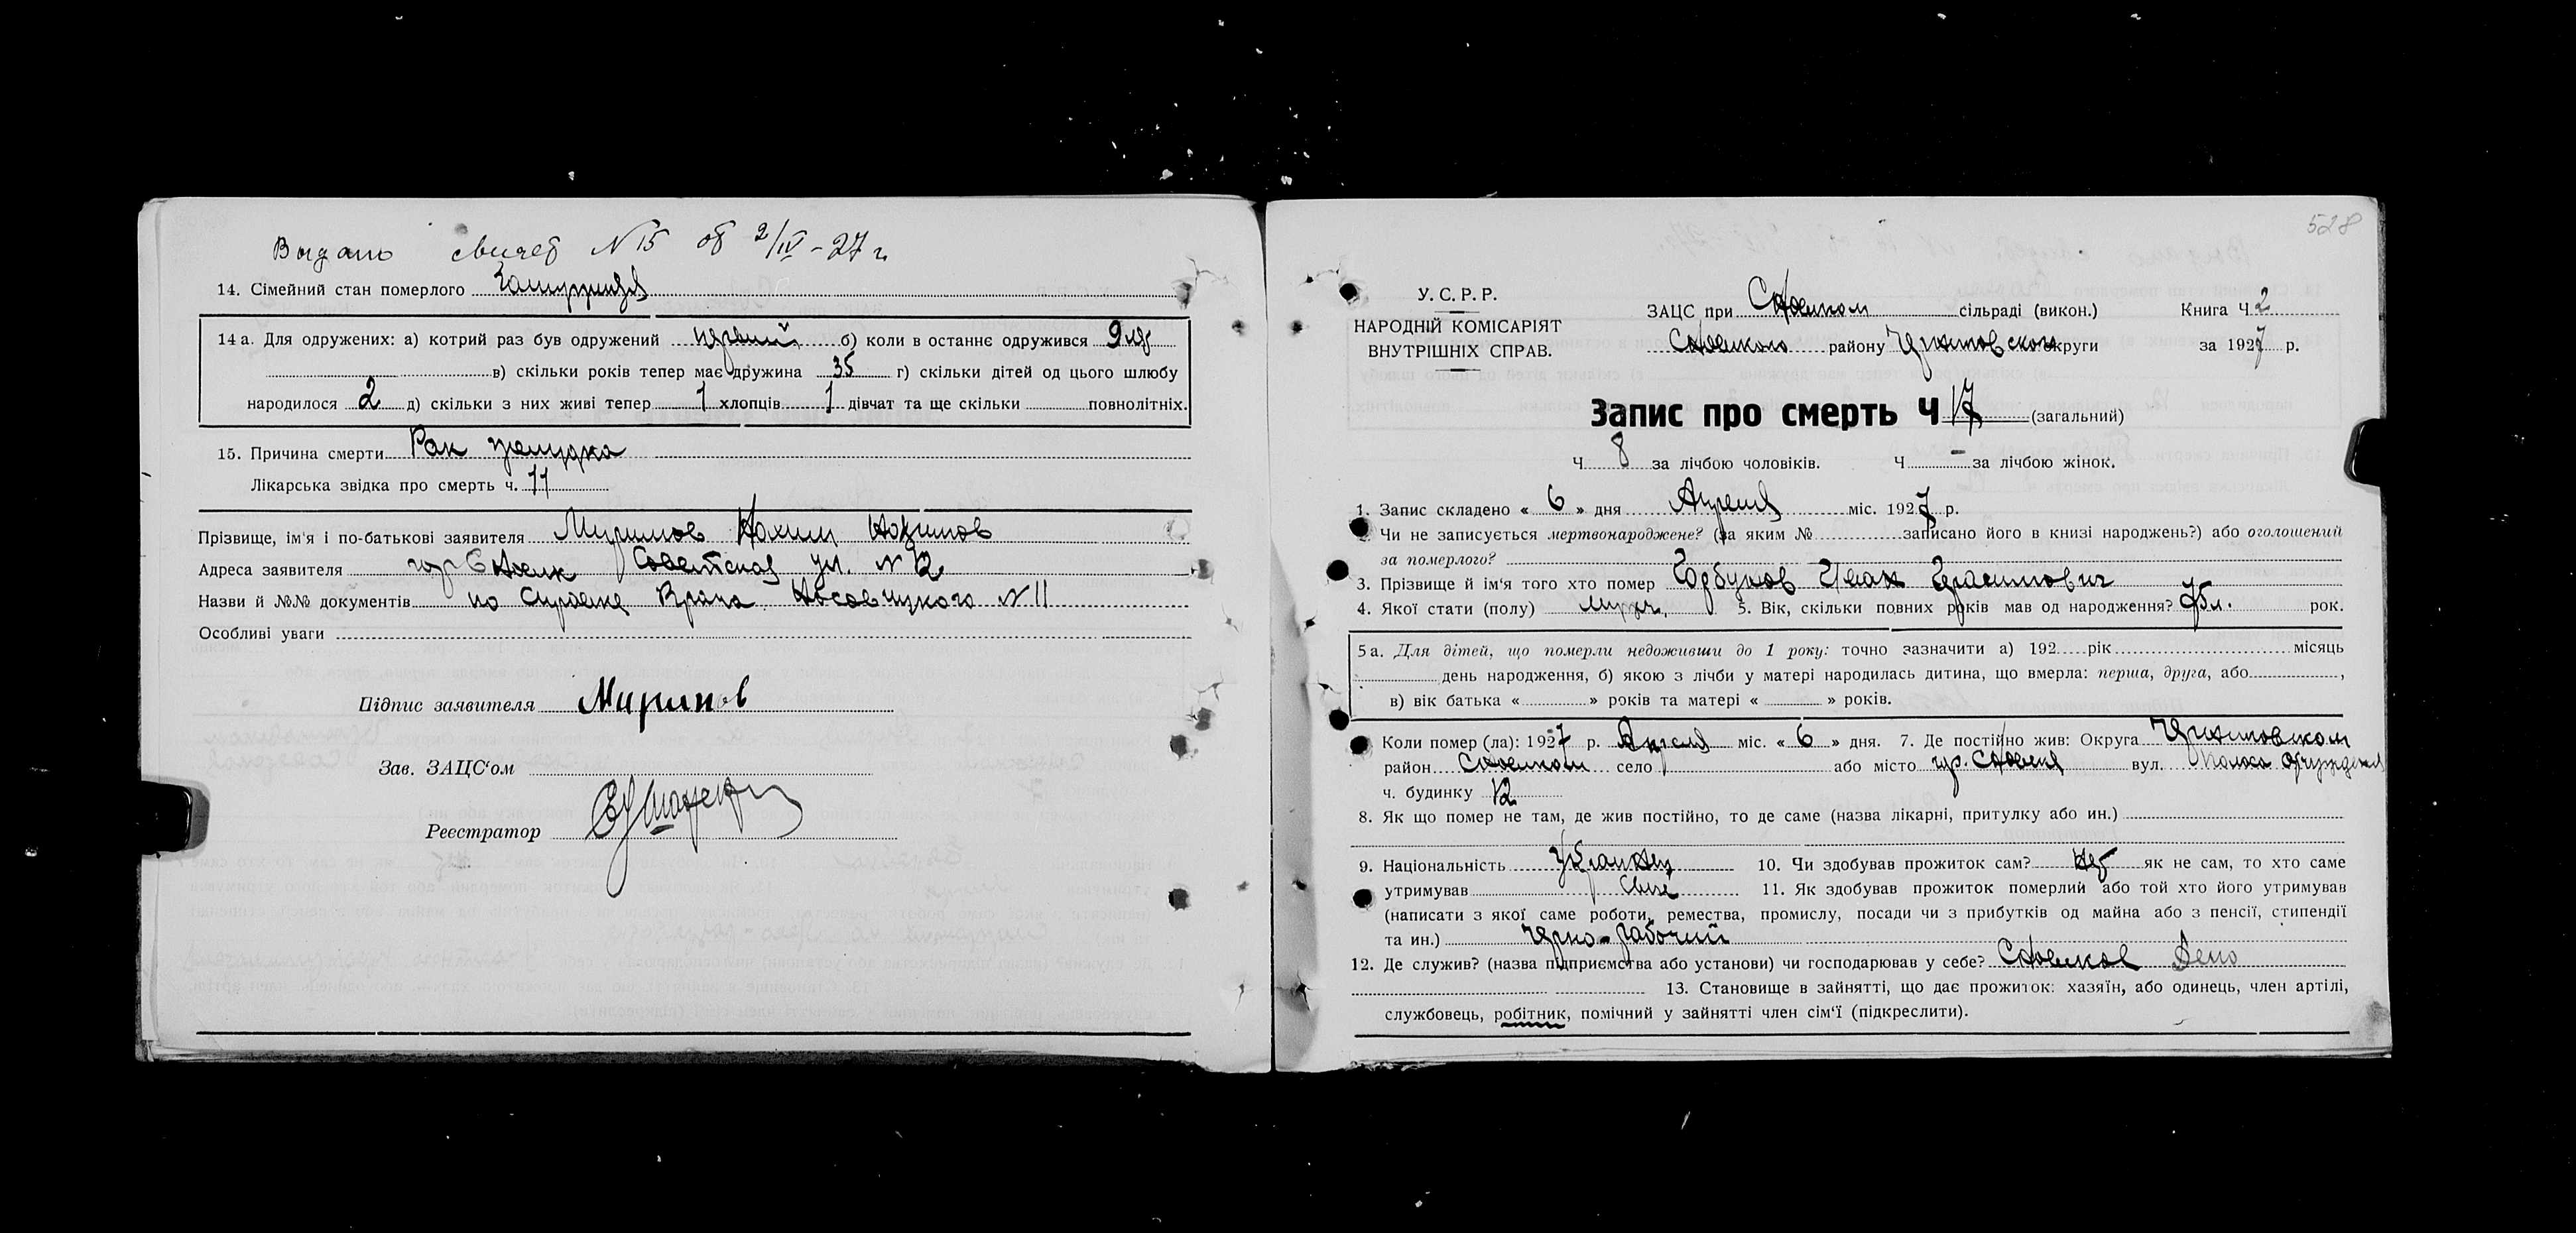 Выдано свидет N 15 от 2/IV – 27 г.
14. Сімейний стан померлого
14 а. Для одружених: а) котрий раз був одружений первий б) коли в останнє одружився
в) скільки років тепер має дружина 35 г) скільки дітей од цього шлюбу
народилося 2 д) скільки з них живі тепер 1 хлопців 1 дівчат та ще скільки повнолітніх.
15. Причина смерти Рак желудка
Лікарська звідка про смерть ч. 11
Прізвище, ім'я і по-батькові заявителя
Адреса заявителя гор Сновск Советская ул. N 12
Назви й №№ документів по справке Врача Носовицкого N 11
Особливі уваги
Підпис заявителя
Зав. ЗАЦС'ом
Реєстратор
528
У. С. Р. Р.
НАРОДНІЙ КОМІСАРІЯТ
ВНУТРІШНІХ СПРАВ.
ЗАЦС при Сновском сільраді (викон.) Книга Ч. 2
Сновского району Черниговского округи за 1927 р.
Запис про смерть Ч 17 (загальний)
Ч 8 за лічбою чоловіків. Ч. – за лічбою жінок.
1. Запис складено « 6 » дня Апреля міс. 1927 р.
Чи не записується мертвонароджене? (за яким № записано його в книзі народжень?) або оголошений
за померлого?
3. Прізвище й ім'я того хто помер Горбунов Иван Герасимович
4. Якої стати (полу) мужч. 5. Вік, скільки повних років мав од народження? рок.
5 а. Для дітей, що померли недоживши до 1 року: точно зазначити а) 192 рік місяць
день народження, б) якою з лічби у матері народилась дитина, що вмерла: перша, друга, або ,
в) вік батька « » років та матері « » років.
Коли помер (ла): 1927 р. Апреля міс. « 6 » дня. 7. Де постійно жив: Округа Черниговском
район Сновском село або місто гор. Сновск вул.
ч. будинку 12
8. Як що помер не там, де жив постійно, то де саме (назва лікарні, притулку або ин.)
9. Національність Украинец 10. Чи здобував прожиток сам? нет як не сам, то хто саме
утримував 11. Як здобував прожиток померлий або той хто його утримував
(написати з якої саме роботи, ремества, промислу, посади чи з прибутків од майна або з пенсії, стипендії
та ин.) Черно-рабочий
12. Де служив? (назва підприємства або установи) чи господарював у себе? Сновское Депо
13. Становище в зайнятті, що дає прожиток: хазяїн, або одинець, член артілі,
службовець, робітник, помічний у зайнятті член сім'ї (підкреслити).